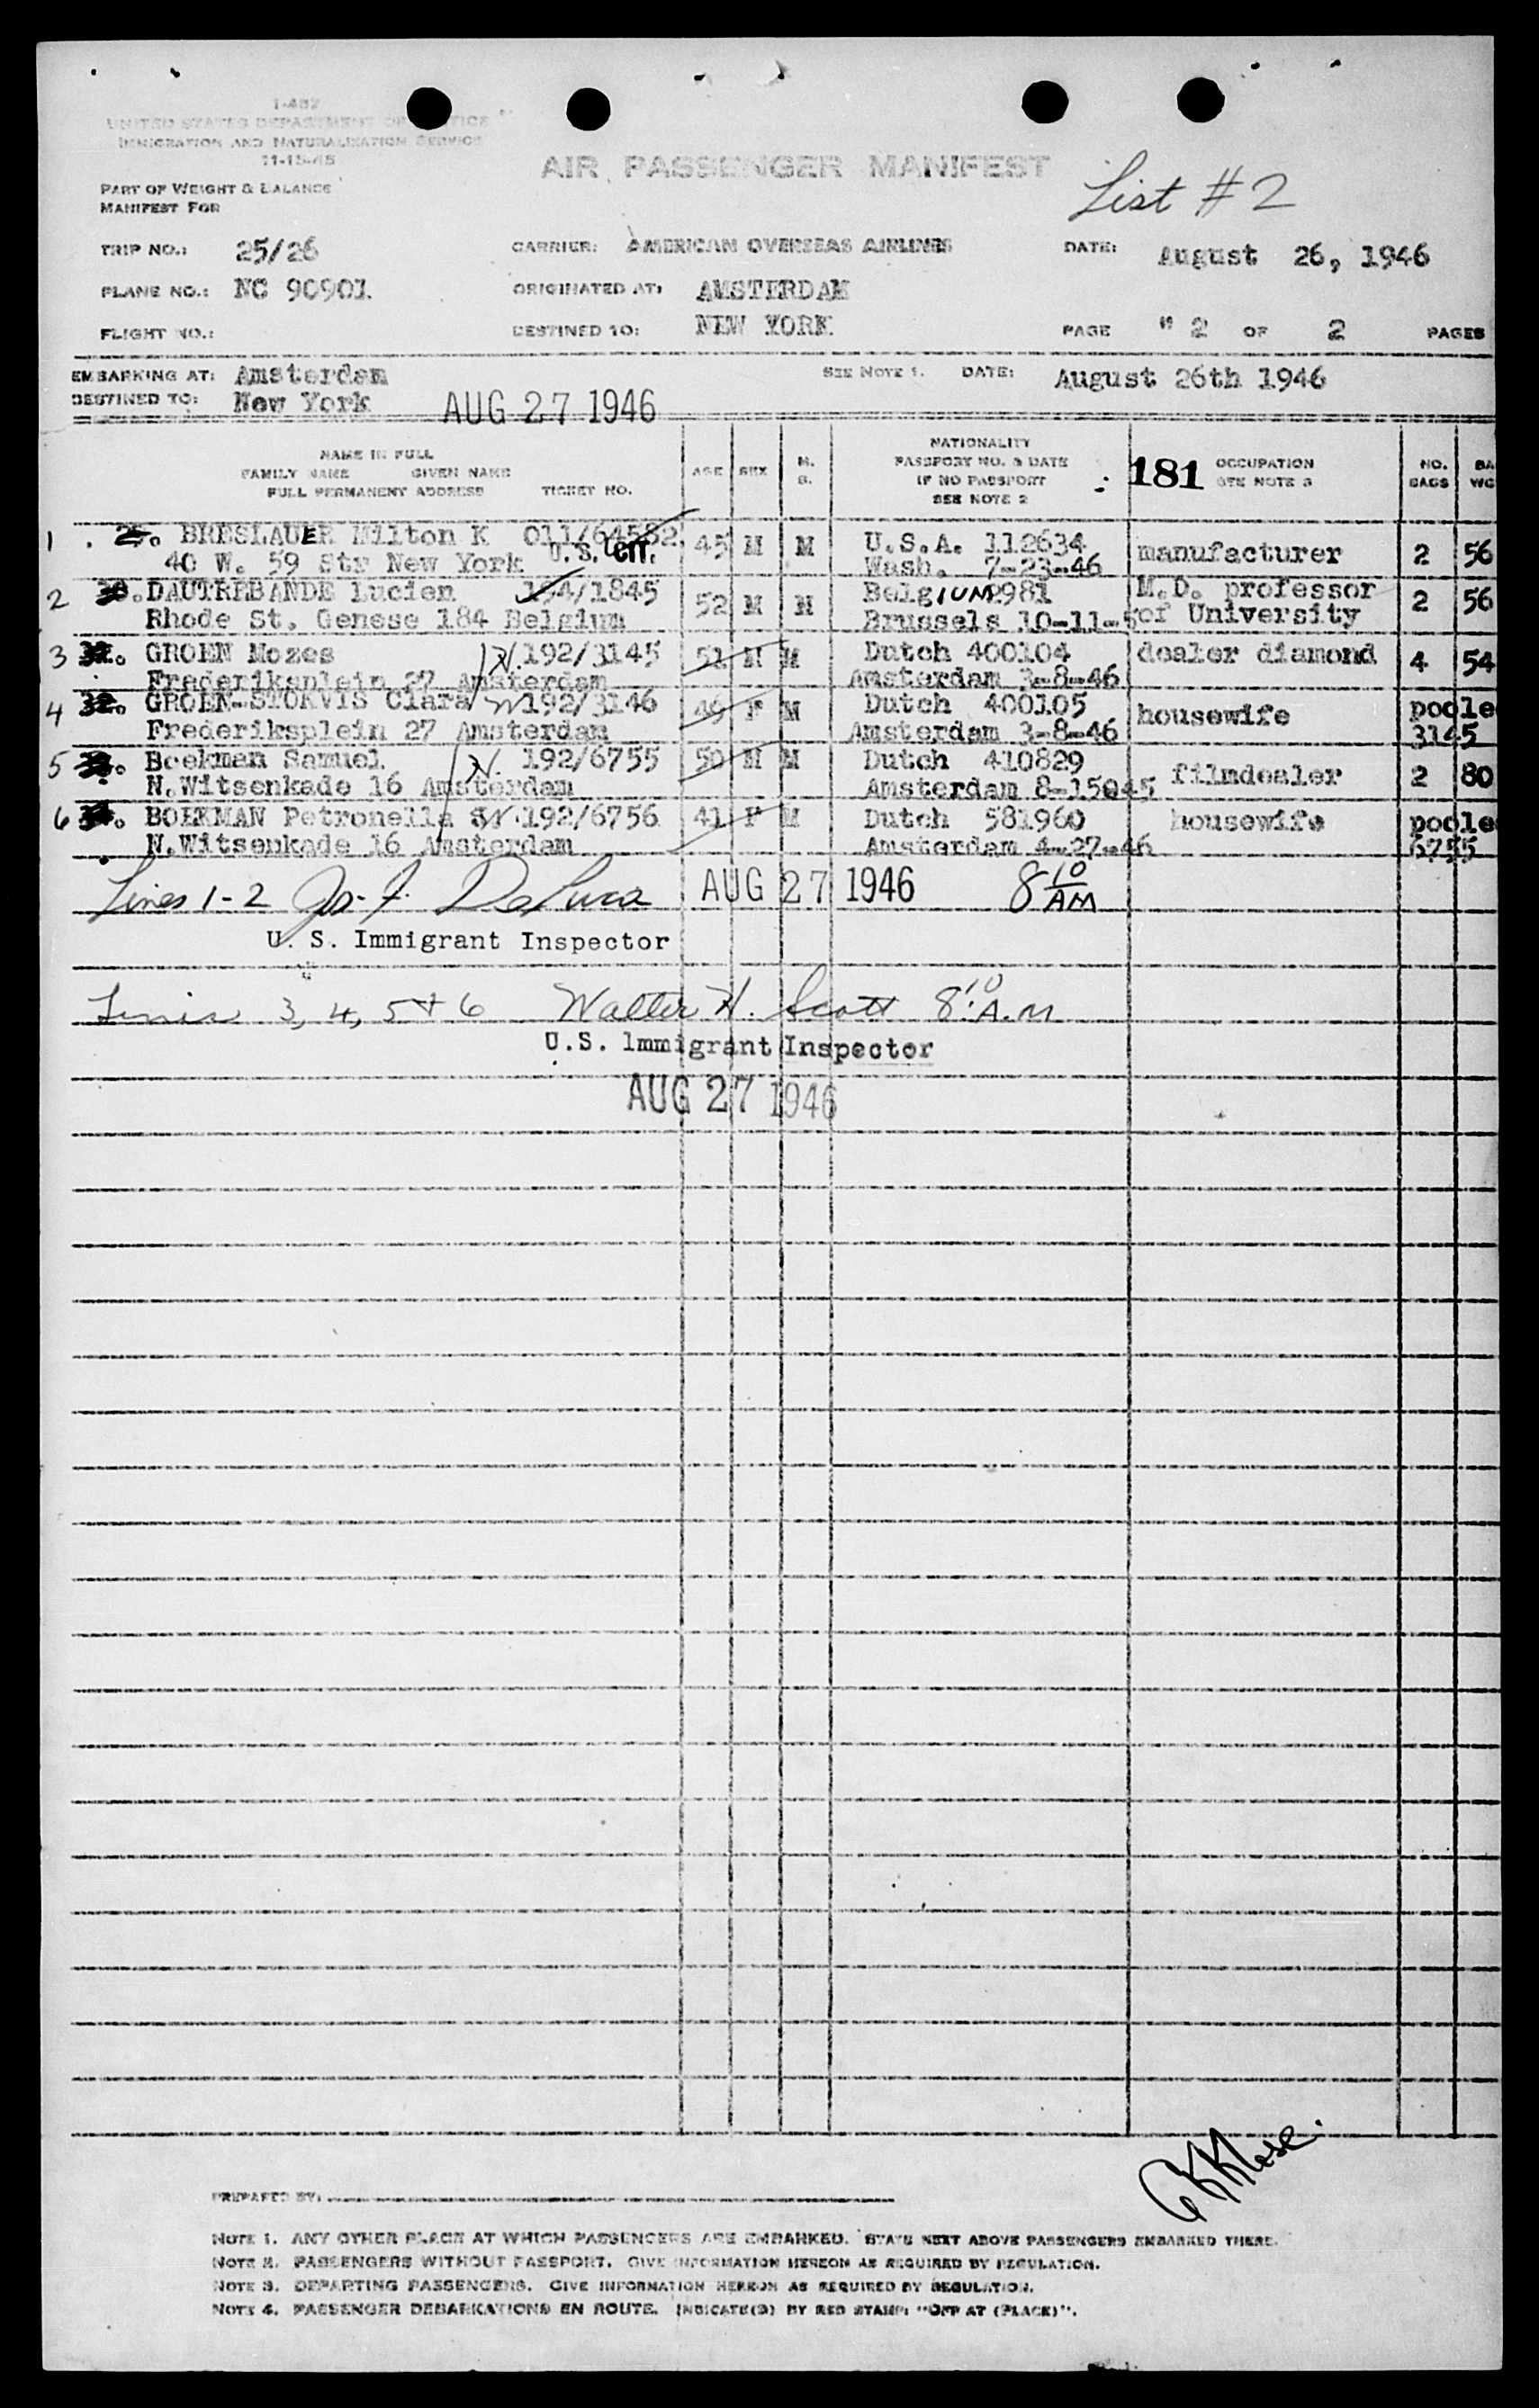 I-482
UNITED STATES DEPARTMENT OF JUSTICE
IMMIGRATION AND NATURALIZATION SERVICE
11-15-45
AIR PASSENGER MANIFEST
List #2
PART OF WEIGHT & BALANCE
MANIFEST FOR
TRIP NO.: 25/26 CARRIER: AMERICAN OVERSEAS AIRLINES DATE: August 26, 1946
PLANE NO.: NC 90901 ORIGINATED AT: AMSTERDAM
FLIGHT NO.: DESTINED TO: NEW YORK PAGE " 2 OF 2 PAGES
EMBARKING AT: Amsterdam SEE NOTE 1. DATE: August 26th 1946
DESTINED TO: New York AUG 27 1946
NAME IN FULL
FAMILY NAME GIVEN NAME
FULL PERMANENT ADDRESS TICKET NO. AGE SEX M. S. NATIONALITY PASSPORT NO. & DATE IF NO PASSPORT SEE NOTE 2 181 OCCUPATION SEE NOTE 3 NO. BAGS BA WG
1 BRESLAUER Milton K 011/64582 45 M M U.S.A. 112634 manufacturer 2 56
40 W. 59 Str New York U.S. CIT. Wash. 7-23-46
2 30. DAUTREBANDE Lucien 194/1845 52 M M BelgIUM 2981 M.D. professor 2 56
Rhode St. Genese 184 Belgium Brussels 10-11-5 of University
3 GROEN Mozes 192/3145 51 M M Dutch 400104 dealer diamond 4 54
Frederiksplein 27 Amsterdam Amsterdam 3-8-46
4 32. GROEN-STORVIS Clara 192/3146 49 F M Dutch 400105 housewife poole
Frederiksplein 27 Amsterdam Amsterdam 3-8-46 3145
5 Boekman Samuel 192/6755 50 M M Dutch 410829 filmdealer 2 80
N.Witsenkade 16 Amsterdam Amsterdam 8-15045
6 BOEKMAN Petronella 192/6756 41 F M Dutch 581960 housewife poole
N.Witsenkade 16 Amsterdam Amsterdam 4-27-46 6755
Lines 1-2 Jos. F. DeLuca AUG 27 1946 8 10 AM
U. S. Immigrant Inspector
Lines 3, 4, 5 + 6 Walter H. Scott 8:10 A.M
U.S. lmmigrant Inspector
AUG 27 1946
PREPARED BY:
NOTE 1. ANY OTHER PLACE AT WHICH PASSENGERS ARE EMBARKED. STATE NEXT ABOVE PASSENGERS EMBARKED THERE.
NOTE 2. PASSENGERS WITHOUT PASSPORT. GIVE INFORMATION HEREON AS REQUIRED BY REGULATION.
NOTE 3. DEPARTING PASSENGERS. GIVE INFORMATION HEREON AS REQUIRED BY REGULATION.
NOTE 4. PASSENGER DEBARKATIONS EN ROUTE. INDICATE(D) BY RED STAMP: "OFF AT (PLACE)".